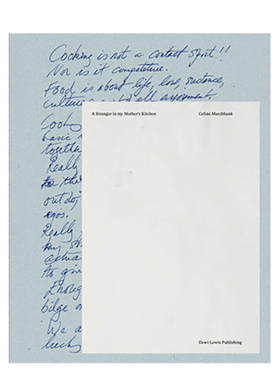 Cooking is not a contact sport!!
Nor is it competetive.
Food is about life, love, sustance,
culture and all enjoyment.
Cook
basic
togeth
Really
for the
outdo
egos.
Really
my st
actua
to giv
Enoug
bilge
We a
heck
A Stranger in my Mother's Kitchen
Celine Marchbank
Dewi Lewis Publishing